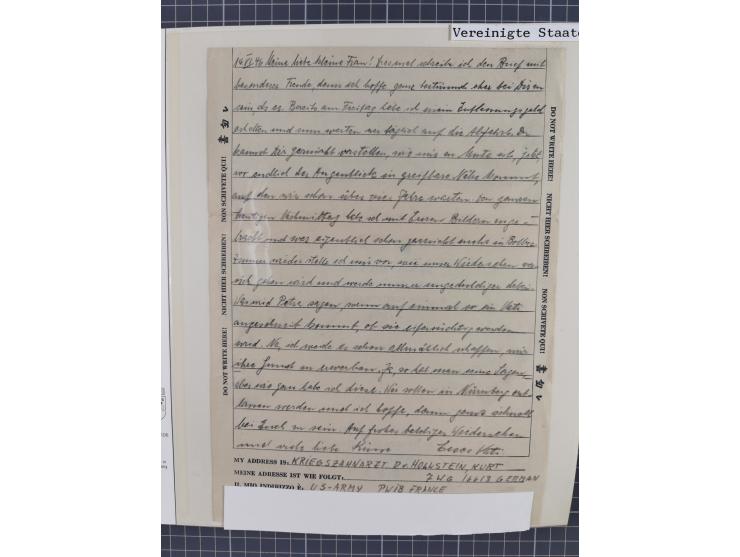 Vereinigte Staate
16.VI.46 Meine liebe kleine Frau! Diesmal schreibe ich den Brief mit
besonderer Freude, denn ich hoffe ganz bestimmt eher bei Dir zu
sein, als er. Bereits am Freitag habe ich mein Entlassungsgeld
erhalten und nun warten wir täglich auf die Abfahrt. Du
kannst Dir garnicht vorstellen, wie mir zu Mute ist, jetzt,
wo endlich der Augenblick in greifbare Nähe kommt,
auf den wir schon über vier Jahre warten. Den ganzen
heutigen Nachmittag habe ich mit Euren Bildern zuge-
bracht und war eigentlich schon garnicht mehr in
Immer wieder stelle ich mir vor, wie unser Wiedersehen vor
sich gehen wird und werde immer ungeduldiger dabei.
Was wird Petra sagen, wenn auf einmal so ein Vati
angeschneit kommt, ob sie eifersüchtig werden
wird. Na, ich werde es schon allmählich schaffen, mir
ihre Gunst zu erwerben. Ja, so hat man seine Sorgen,
aber wie gern habe ich diese. Wir sollen in Nürnberg ent-
lassen werden und ich hoffe, dann ganz schnell
bei Euch zu sein. Auf frohes baldiges Wiedersehen
und viele liebe Küsse Euer Vati
MY ADDRESS IS: KRIEGSZAHNARZT Dr. HOLLSTEIN, KURT
MEINE ADRESSE IST WIE FOLGT: 7 WG 16613 GERMAN
IL MIO INDIRIZZO È: US-ARMY PWIB FRANCE
DO NOT WRITE HERE! NICHT HIER SCHREIBEN! NON SCRIVETE QUI!
DO NOT WRITE HERE! NICHT HIER SCHREIBEN! NON SCRIVETE QUI!